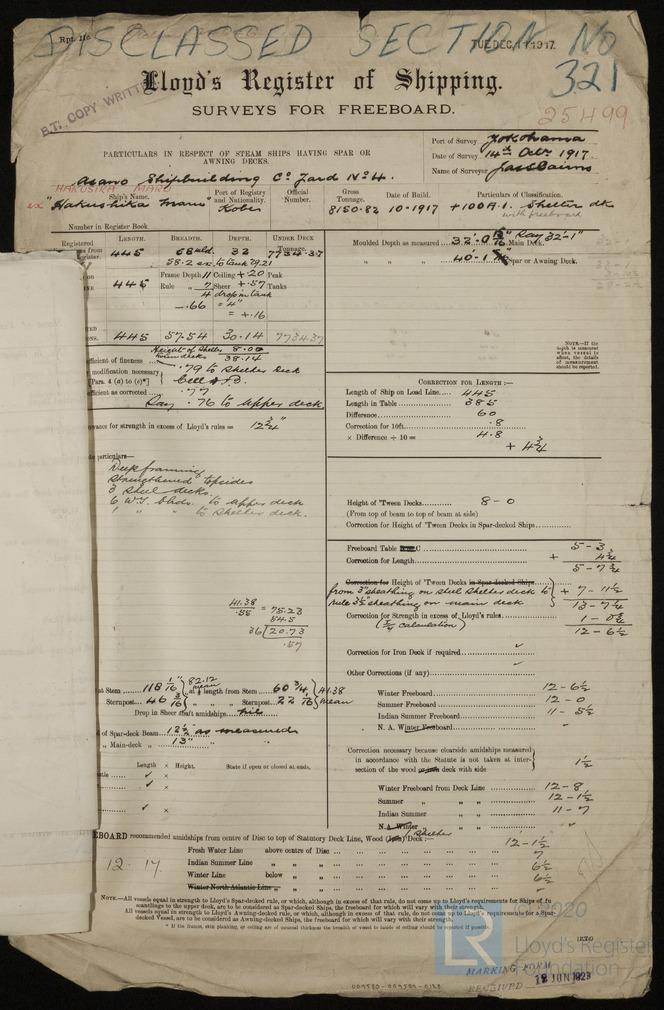 DISCLASSED SECTION NO 321
Rpt. 11c.
TUE. DEC. 11 1917.
Lloyd's Register of Shipping.
B.T. COPY WRITTEN
SURVEYS FOR FREEBOARD.
25499
PARTICULARS IN RESPECT OF STEAM SHIPS HAVING SPAR OR AWNING DECKS.
Port of Survey Yokohama
Date of Survey 14th Octr. 1917.
Name of Surveyor Jas Cairns
Asano Shipbuilding Co Yard No 4.
HAKUSIKA MARU
Ship's Name. Port of Registry and Nationality. Official Number. Gross Tonnage. Date of Build. Particulars of Classification.
ex "Hakushika Maru" Kobe 8150.82 10.1917 +100A.1. Shelter dk
with freeboard
Number in Register Book
LENGTH. BREADTH. DEPTH. UNDER DECK Tonnage.
445 32 7734.37
Frame Depth 11 Ceiling + .20 Peak
445 Rule " 7 Sheer + .57 Tanks
4 drop in tank
.66 = 4"
= + .16
445 57.54 30.14 7734.37
Height of Shelter 8.00
38.14
efficient of fineness
.79 to Shelter Deck
modification necessary
[Para. 4 (a) to (e)*]
efficient as corrected .77
Say .76 to upper deck
Moulded Depth as measured 32'-0 Say 32'-1" Main Deck.
" " " 40-1 Spar or Awning Deck.
NOTE.—If the depth is measured when vessel is afloat, the details of measurement should be reported.
CORRECTION FOR LENGTH:—
Length of Ship on Load Line 445
Length in Table 385
Difference 60
Correction for 10ft. .8
× Difference ÷ 10 = 4.8
+ 4 3/4
owance for strength in excess of Lloyd's rules = 12 3/4"
te particulars—
Deep framing
Strengthened topsides
3 Steel decks.
6 W.T. blhds. to upper deck
1 " " to Shelter deck.
Height of 'Tween Decks 8 - 0
(From top of beam to top of beam at side)
Correction for Height of 'Tween Decks in Spar-decked Ships
Freeboard Table C 5 - 3
Correction for Length + 4 3/4
5 - 7 3/4
Correction for Height of 'Tween Decks in Spar-decked Ships
from 3" sheathing on steel shelter deck to + 7 - 11 1/2
rule 3 1/2" sheathing on main deck 13 - 7 1/4
Correction for Strength in excess of Lloyd's rules
12 - 6 1/2
41.38
.55 = 75.23
54.5
36 | 20.73
.57
Correction for Iron Deck if required
Other Corrections (if any)
at Stem 118 1/16" at 1/8 length from Stem 60 3/4 41.38
82.12 mean
Sternpost 46 3/16 " " " Sternpost 22 1/16 mean
Drop in Sheer abaft amidships nil
t of Spar-deck Beam 12 1/2 as measured
" Main-deck " 13" "
Length × Height. State if open or closed at ends.
Winter Freeboard 12 - 6 1/2
Summer Freeboard 12 - 0
Indian Summer Freeboard 11 - 5 1/2
N. A. Winter Freeboard
Correction necessary because clearside amidships measured
in accordance with the Statute is not taken at inter-
section of the wood deck with side 1 1/2
Winter Freeboard from Deck Line 12 - 8
Summer " " " 12 - 1 1/2
Indian Summer " " 11 - 7
N.A. Winter " "
EBOARD recommended amidships from centre of Disc to top of Statutory Deck Line, Wood (Iron) Shelter Deck:— 12 - 1 1/2
Fresh Water Line above centre of Disc 7
12 . 17. Indian Summer Line " " " 6 1/2
Winter Line below " " 6 1/2
Winter North Atlantic Line " " "
NOTE.—All vessels equal in strength to Lloyd's Spar-decked rule, or which, although in excess of that rule, do not come up to Lloyd's requirements for Ships of its
scantlings to the upper deck, are to be considered as Spar-decked Ships, the freeboard for which will vary with their strength.
All vessels equal in strength to Lloyd's Awning-deck rule, or which, although in excess of that rule, do not come up to Lloyd's requirements for a Spar-
decked Vessel, are to be considered as Awning-decked Ships, the freeboard for which will vary with their strength.
* If the frames, skin planking, or ceiling are of unusual thickness the breadth of vessel to inside of ceiling should be reported if possible.
© 2020
LR
Lloyd's Register
Foundation
MARKING FORM
RECEIVED 12 JUN 1923
009580-009589-0128